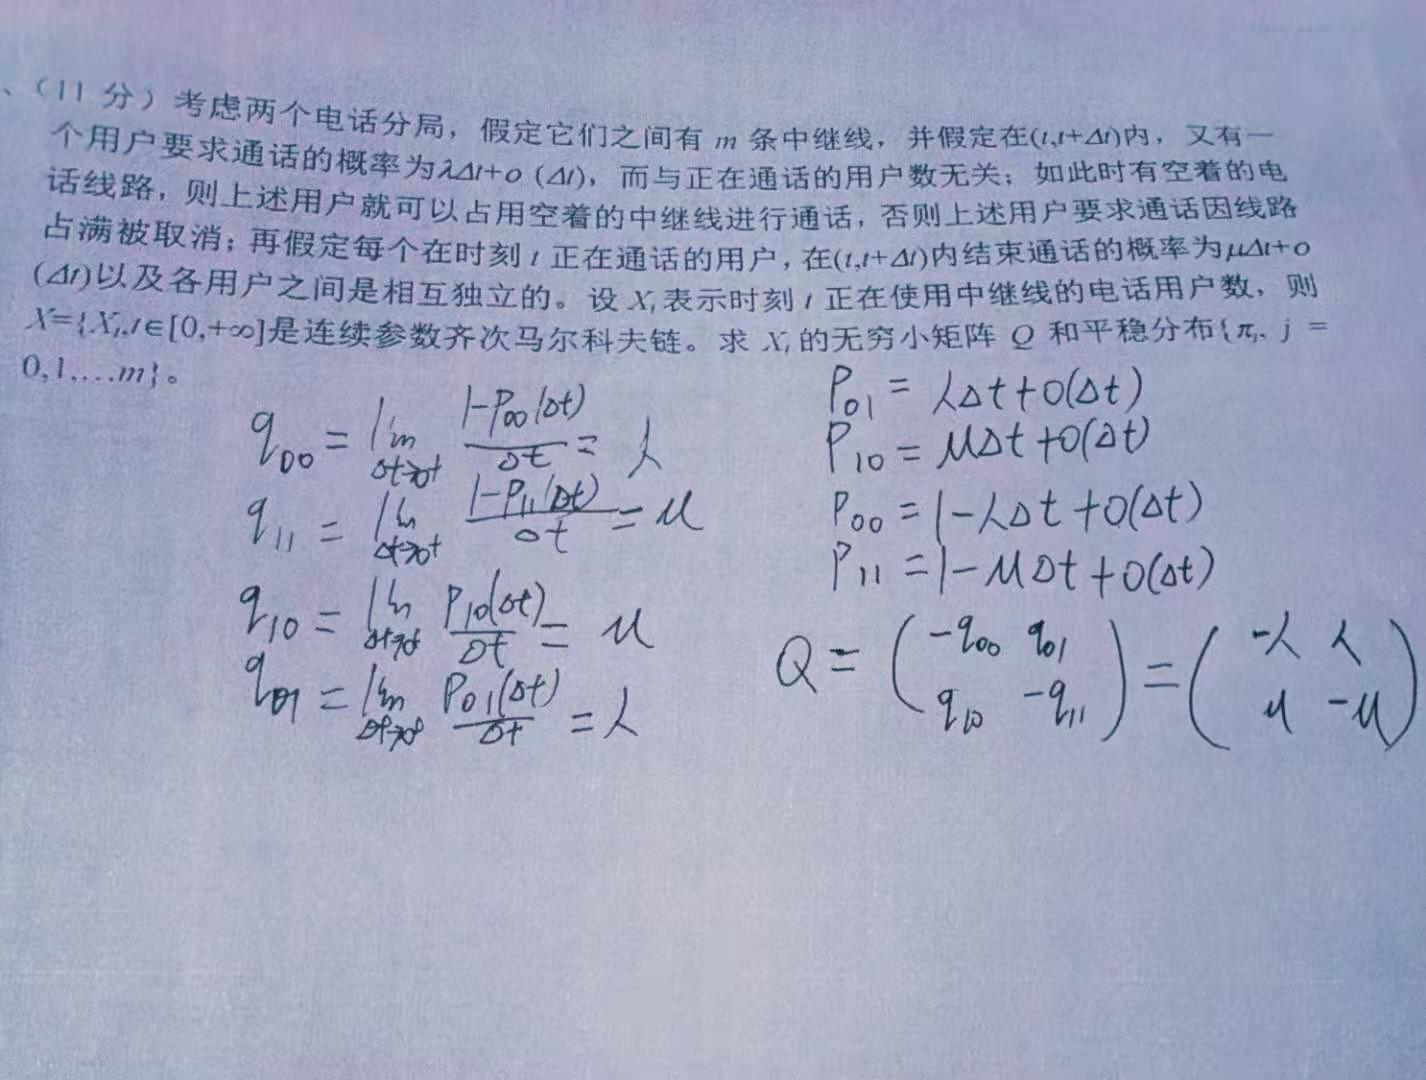 、（11 分）考虑两个电话分局，假定它们之间有 m 条中继线，并假定在(t,t+Δt)内，又有一
个用户要求通话的概率为λΔt+o（Δt)，而与正在通话的用户数无关；如此时有空着的电
话线路，则上述用户就可以占用空着的中继线进行通话，否则上述用户要求通话因线路
占满被取消；再假定每个在时刻 t 正在通话的用户，在(t,t+Δt)内结束通话的概率为μΔt+o
(Δt)以及各用户之间是相互独立的。设 Xt 表示时刻 t 正在使用中继线的电话用户数，则
X={Xt,t∈[0,+∞]是连续参数齐次马尔科夫链。求 Xt 的无穷小矩阵 Q 和平稳分布{πj、j =
0,1,…m}。
q00 = lim Δt→0+ (1-P00(Δt))/Δt = λ
q11 = lim Δt→0+ (1-P11(Δt))/Δt = μ
q10 = lim Δt→0+ P10(Δt)/Δt = μ
q01 = lim Δt→0+ P01(Δt)/Δt = λ
P01 = λΔt+o(Δt)
P10 = μΔt+o(Δt)
P00 = 1-λΔt+o(Δt)
P11 = 1-μΔt+o(Δt)
Q = (-q00 q01 = (-λ λ
q10 -q11) μ -μ)